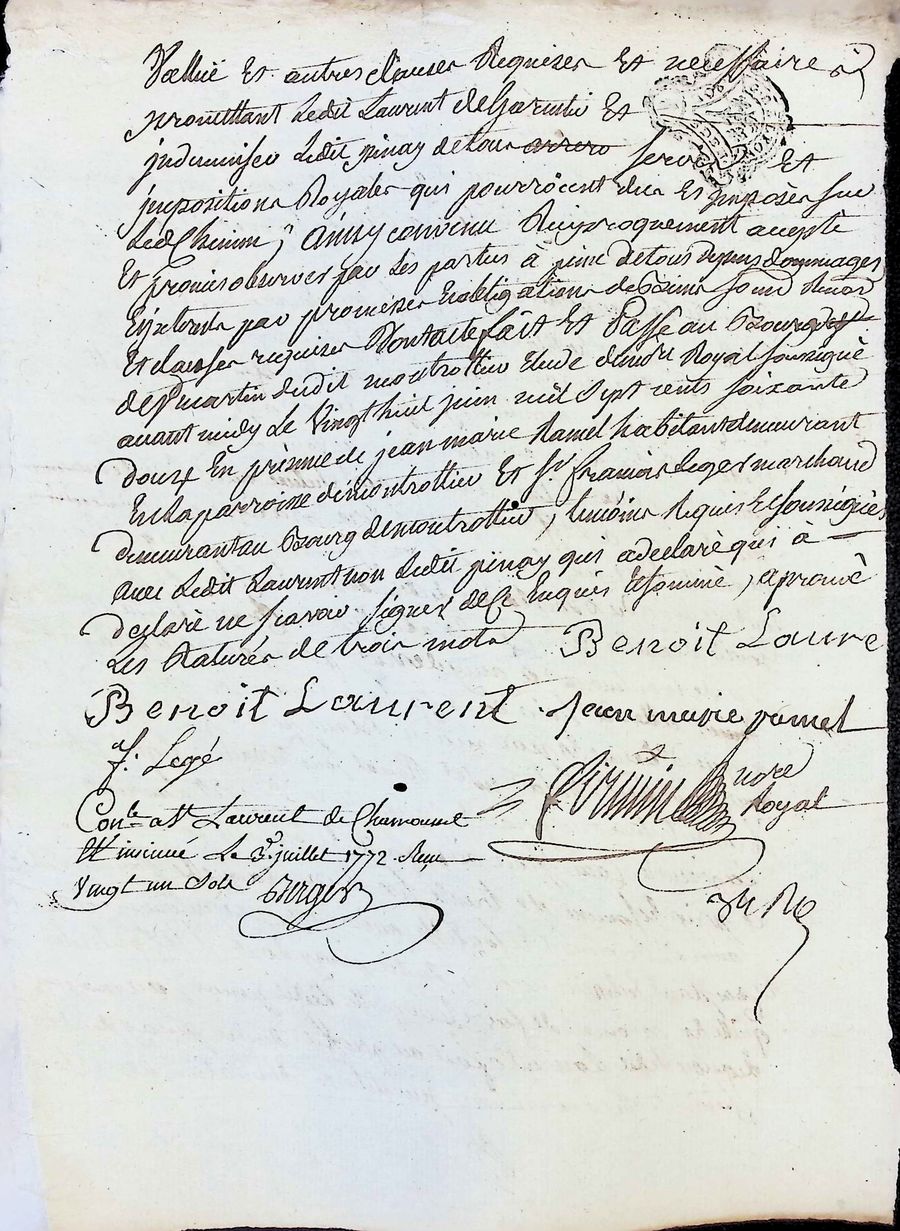 Et autres clauses Requises Et necessaire
promettant Ledit Laurent de Garantir Et
indemniser Ledit pinay de tous servis Et
impositions Royales qui pourroient Etre imposés sur
Led Chemin, ainsy convenu Reciproquement accepté
Et promis observer par Les parties à peine de tous depens dommages
par promesses obligations de biens
Et clauses requises Dont acte fait Et Passé au Bourg
de St martin dudit montrottier Etude du no.re Royal soussigné
avant midy Le vingt huit juin mil sept cents soixante
douze En presence de jean marie Ramel habitant demeurant
En la parroisse de montrottier Et Sr. francois Leger marchand
demeurant au Bourg de montrottier, temoins Requis Et soussignés
avec Ledit Laurent non Ledit pinay qui a declaré qui à
declaré ne scavoir signer de ce Enquis Et sommé, aprouvé
Les Ratures de trois mots Benoit Laure
Benoit Laurent jean marie ramel
f. Legé
nore
Royal
Con.le a St Laurent de Chamousset
Et insinué Le 3.e juillet 1772. Reçu
vingt un sols